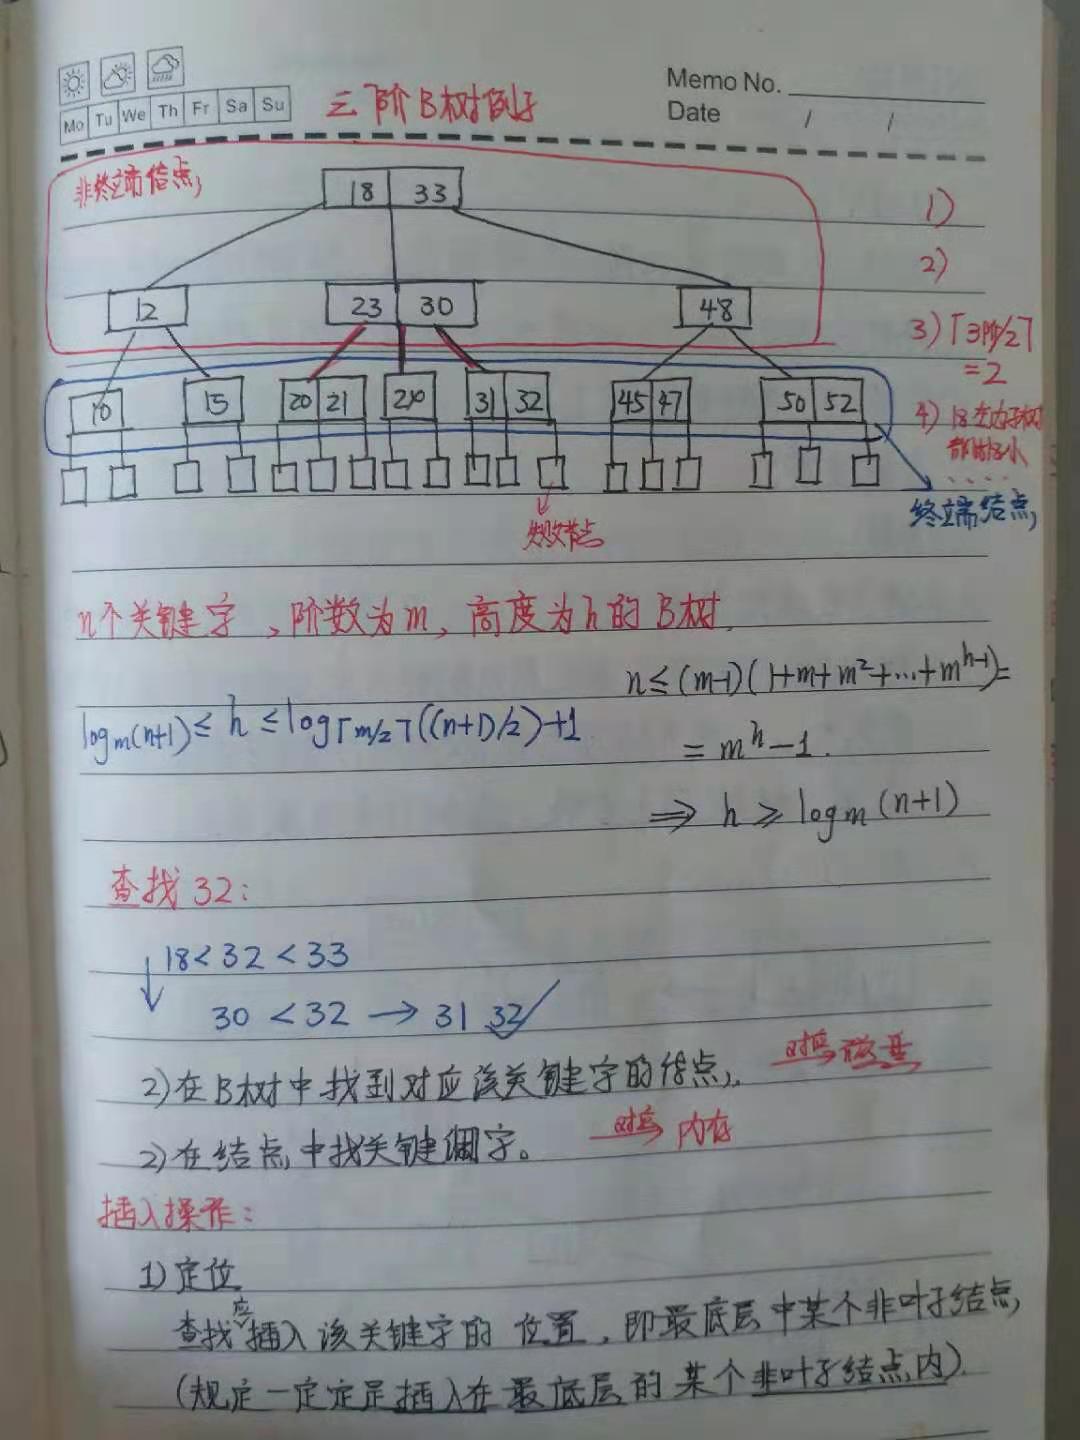 Mo Tu We Th Fr Sa Su
三阶B树例子
Memo No.
Date / /
非终端结点
18 33
1)
2)
12 23 30 48
3) ⌈3阶/2⌉
=2
10 15 20 21 24 31 32 45 47 50 52
4) 18左边子树
都比18小
....
终端结点
失败节点
n个关键字，阶数为m，高度为h的B树.
n≤(m-1)(1+m+m²+...+m^{h-1})=
log_m(n+1)≤h≤log_{⌈m/2⌉}((n+1)/2)+1
=m^h-1.
⇒ h≥log_m(n+1)
查找32:
↓18<32<33
30<32→31 32✓
2)在B树中找到对应该关键字的结点. 对应磁盘
2)在结点中找关键字。 对应 内存
插入操作:
1)定位
查找应插入该关键字的位置，即最底层中某个非叶子结点
(规定一定是插入在最底层的某个非叶子结点内).